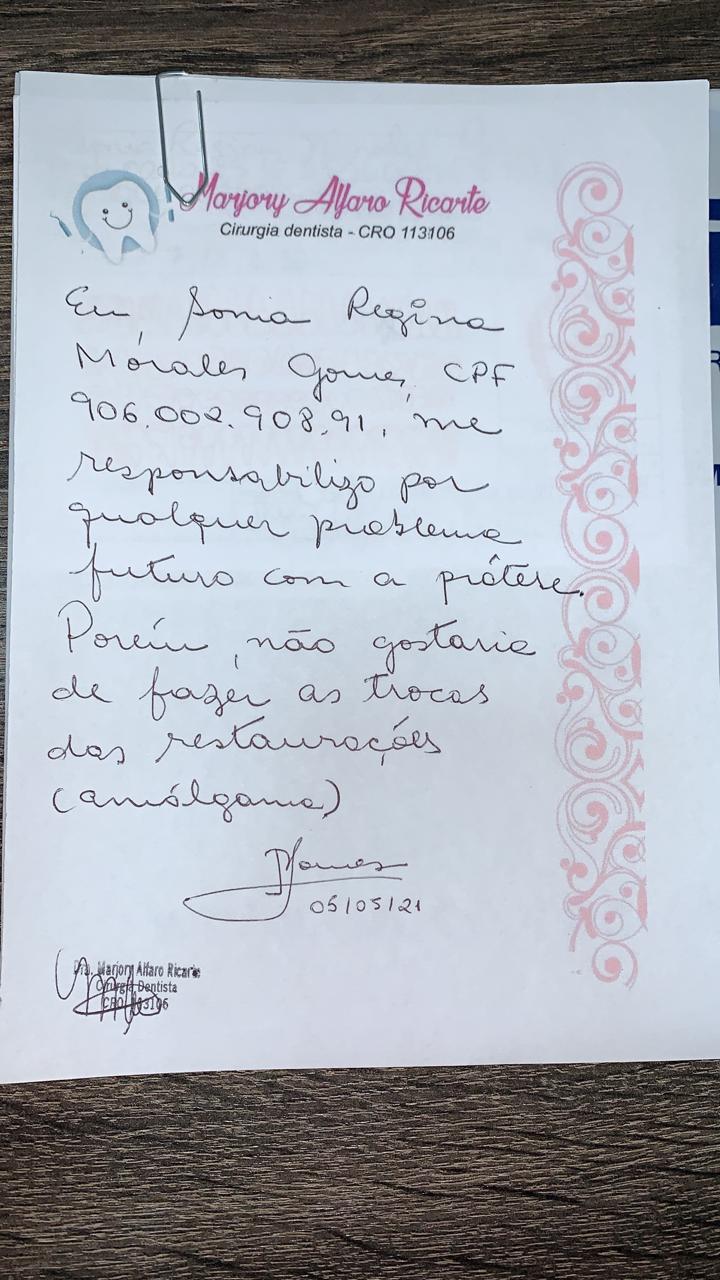 Marjory Alfaro Ricarte
Cirurgia dentista - CRO 113106
Eu, Sonia Regina
Morales Gomes, CPF
906.002.908.91, me
responsabilizo por
qualquer problema
futuro com a prótese.
Porém, não gostaria
de fazer as trocas
das restaurações
(amálgama)
05/05/21
Dra. Marjory Alfaro Ricarte
Cirurgiã Dentista
CRO 113106